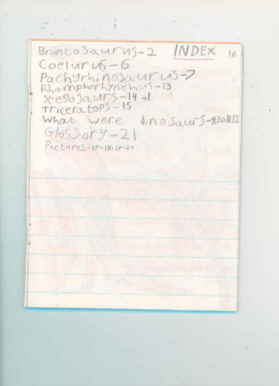 INDEX
Brontosaurus-2
Coelurus-6
Pachyrhinosaurus-7
Rhamphorhynchus-13
Stegosaurs-14
Triceratops-15
What were dinosaurs-
Glossary-21
Pictures-